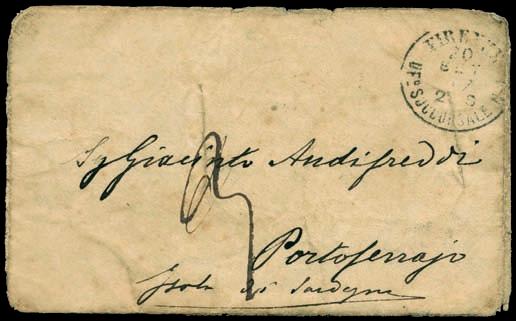 FIRENZE
20
UFº SUCCURSALE Nº
Sg Giacinto Andifreddi
Portoferrajo
Isola di Sardegna